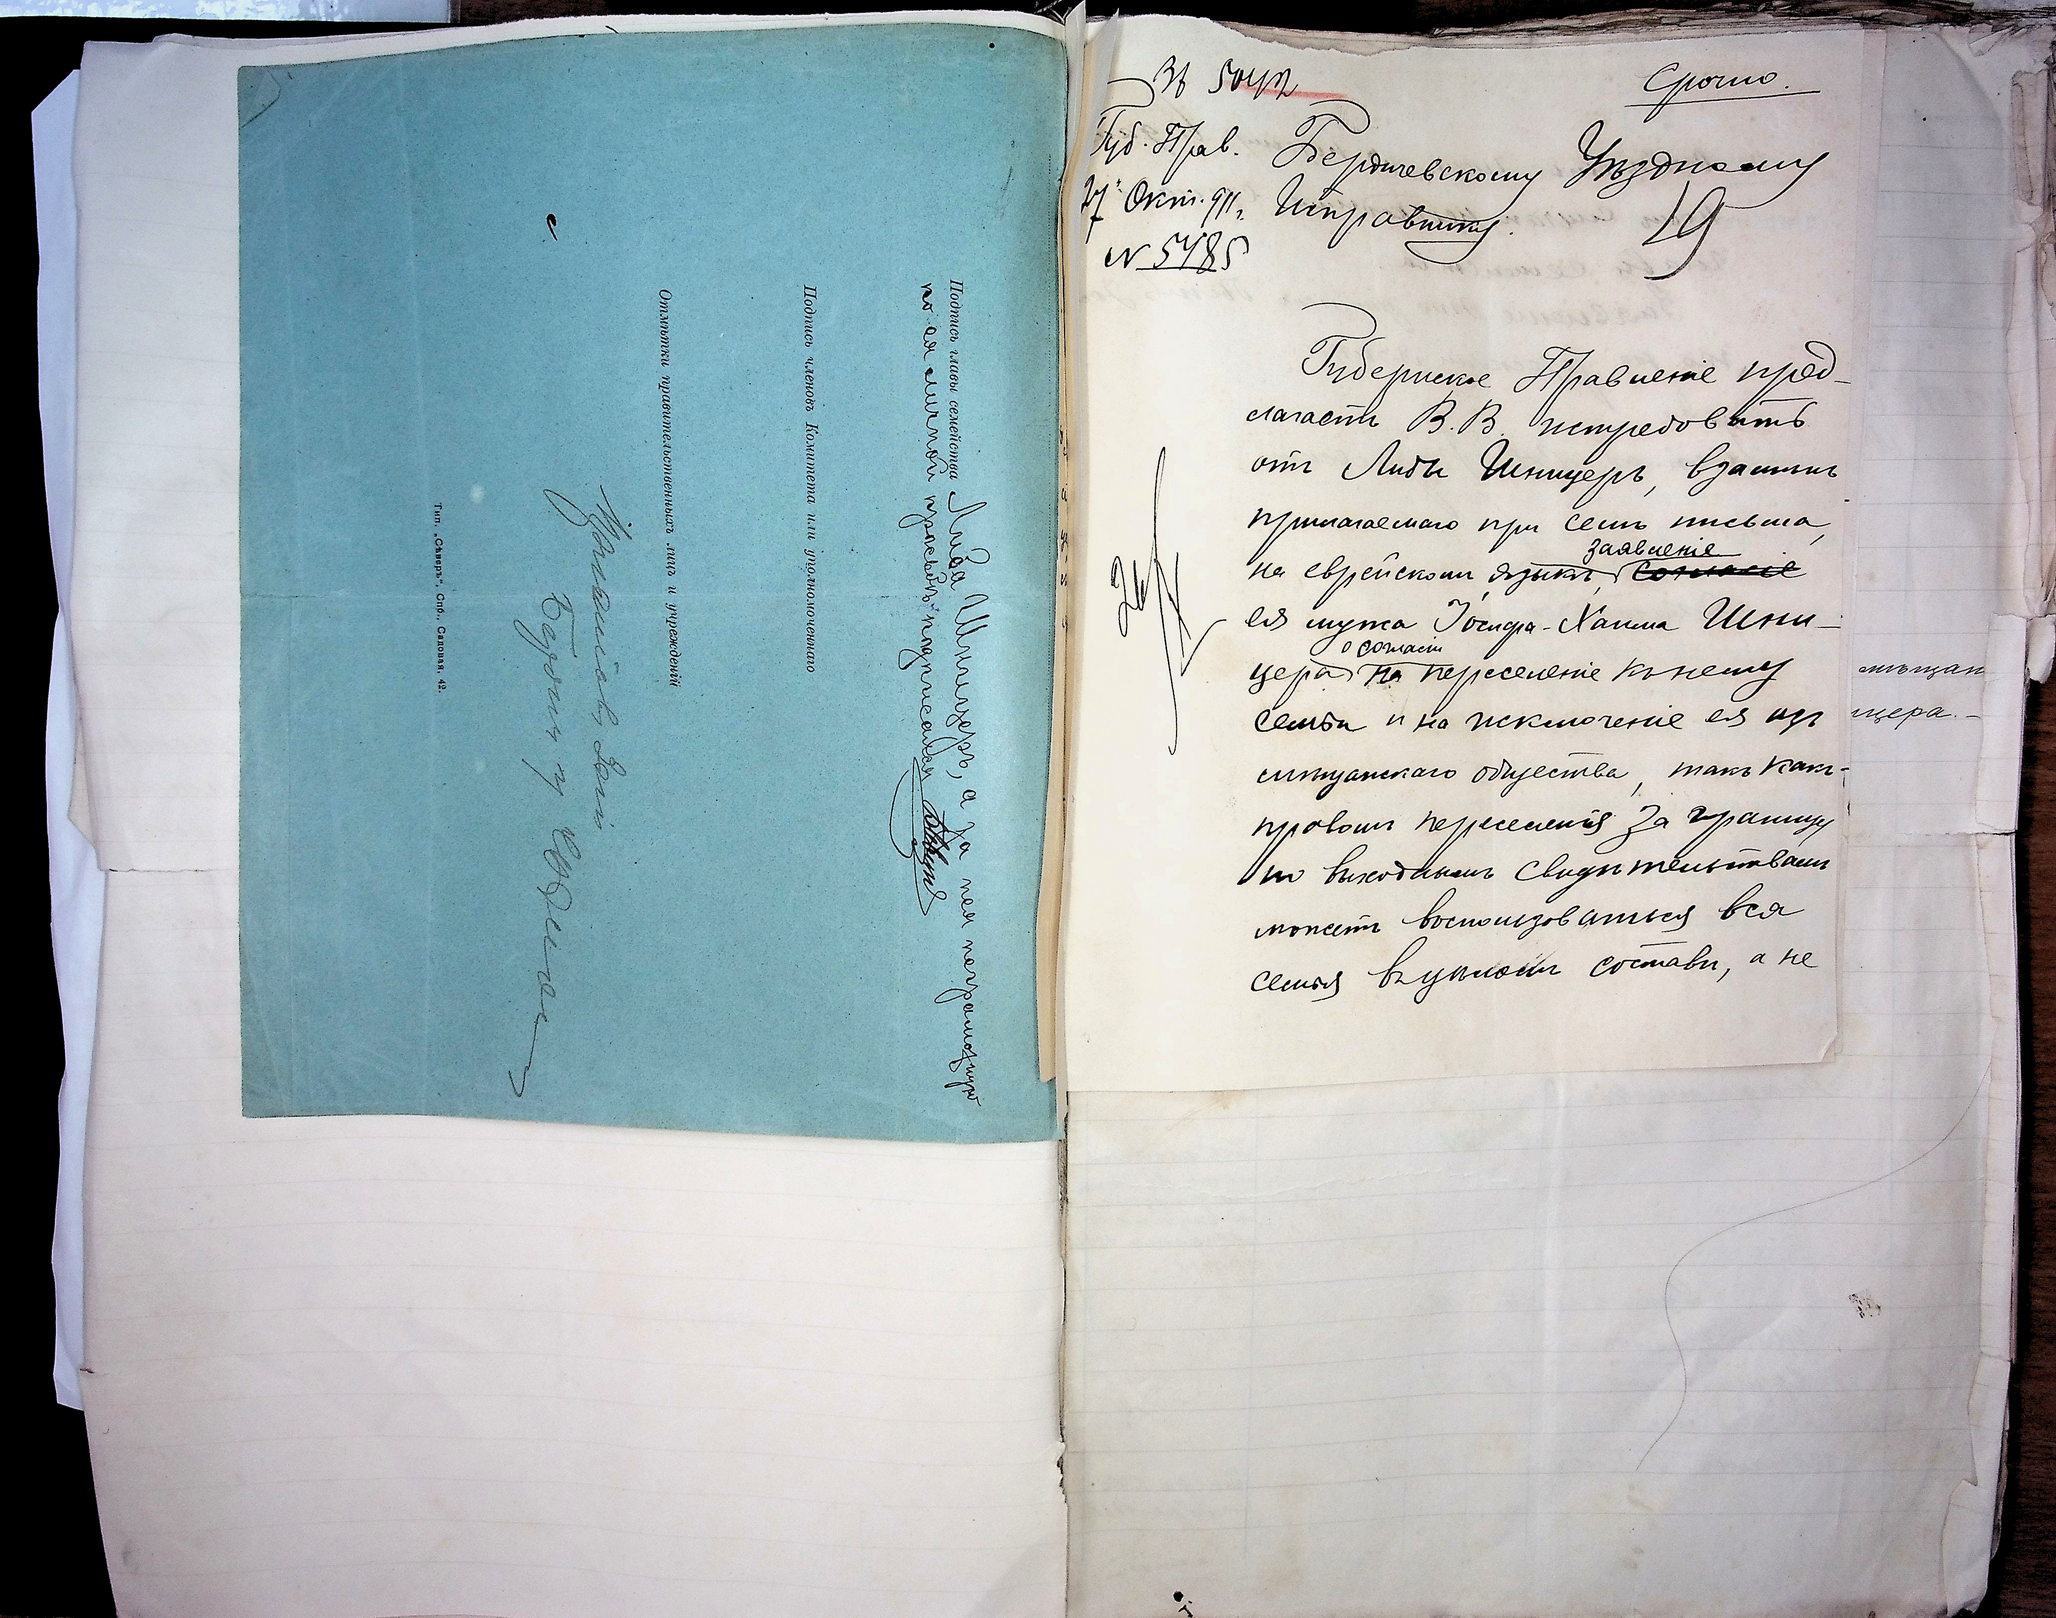 Подпись главы семейства Либа Шницеръ, а за нея неграмотную
по ея личной просьбѣ подписался
Подпись членовъ Комитета или уполномоченнаго
Отмѣтки правительственныхъ лицъ и учрежденій
Тип. „Сѣверъ“, Спб., Садовая, 42.
Срочно.
Губ. Прав.
27 Окт. 911 г.
N 5485
Бердичевскому Уѣздному
Исправнику.
19
Губернское Правленіе пред-
лагаетъ В. В. истребовать
отъ Либы Шницеръ, взамѣнъ
прилагаемаго при семъ письма,
на еврейскомъ языкѣ, согласіе
заявленіе
ея мужа Іосифа-Хаима Шни-
о согласіи
цера на переселеніе къ нему
семьи и на исключеніе ея изъ
мѣщанскаго общества, такъ какъ
правомъ переселенія за границу
по выходнымъ свидѣтельствамъ
можетъ воспользоваться вся
семья въ цѣломъ составѣ, а не
мѣщан
ицера.